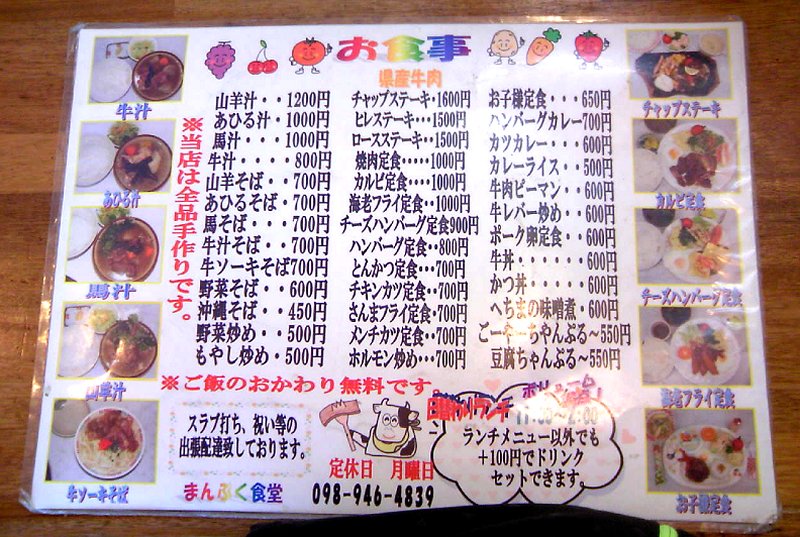 お食事
県産牛肉
山羊汁・・1200円
あひる汁・1000円
馬汁・・・1000円
牛汁・・・・800円
山羊そば・・700円
あひるそば・700円
馬そば・・・700円
牛汁そば・・700円
牛ソーキそば700円
野菜そば・・600円
沖縄そば・・450円
野菜炒め・・500円
もやし炒め・500円
チャップステーキ・1600円
ヒレステーキ・・・1500円
ロースステーキ・・1500円
焼肉定食・・・・・1000円
カルビ定食・・・・1000円
海老フライ定食・・1000円
チーズハンバーグ定食900円
ハンバーグ定食・・800円
とんかつ定食・・・700円
チキンカツ定食・・700円
さんまフライ定食・700円
メンチカツ定食・・700円
ホルモン炒め・・・700円
お子様定食・・・650円
ハンバーグカレー700円
カツカレー・・・600円
カレーライス・・500円
牛肉ピーマン・・600円
牛レバー炒め・・600円
ポーク卵定食・・600円
牛丼・・・・・・600円
かつ丼・・・・・600円
へちまの味噌煮・600円
ごーやーちゃんぷる〜550円
豆腐ちゃんぷる〜550円
※当店は全品手作りです。
※ご飯のおかわり無料です
スラブ打ち、祝い等の
出張配達致しております。
まんぷく食堂
定休日 月曜日
098-946-4839
日替わりランチ
ランチメニュー以外でも
+100円でドリンク
セットできます。
牛汁
あひる汁
馬汁
山羊汁
牛ソーキそば
チャップステーキ
カルビ定食
チーズハンバーグ定食
海老フライ定食
お子様定食